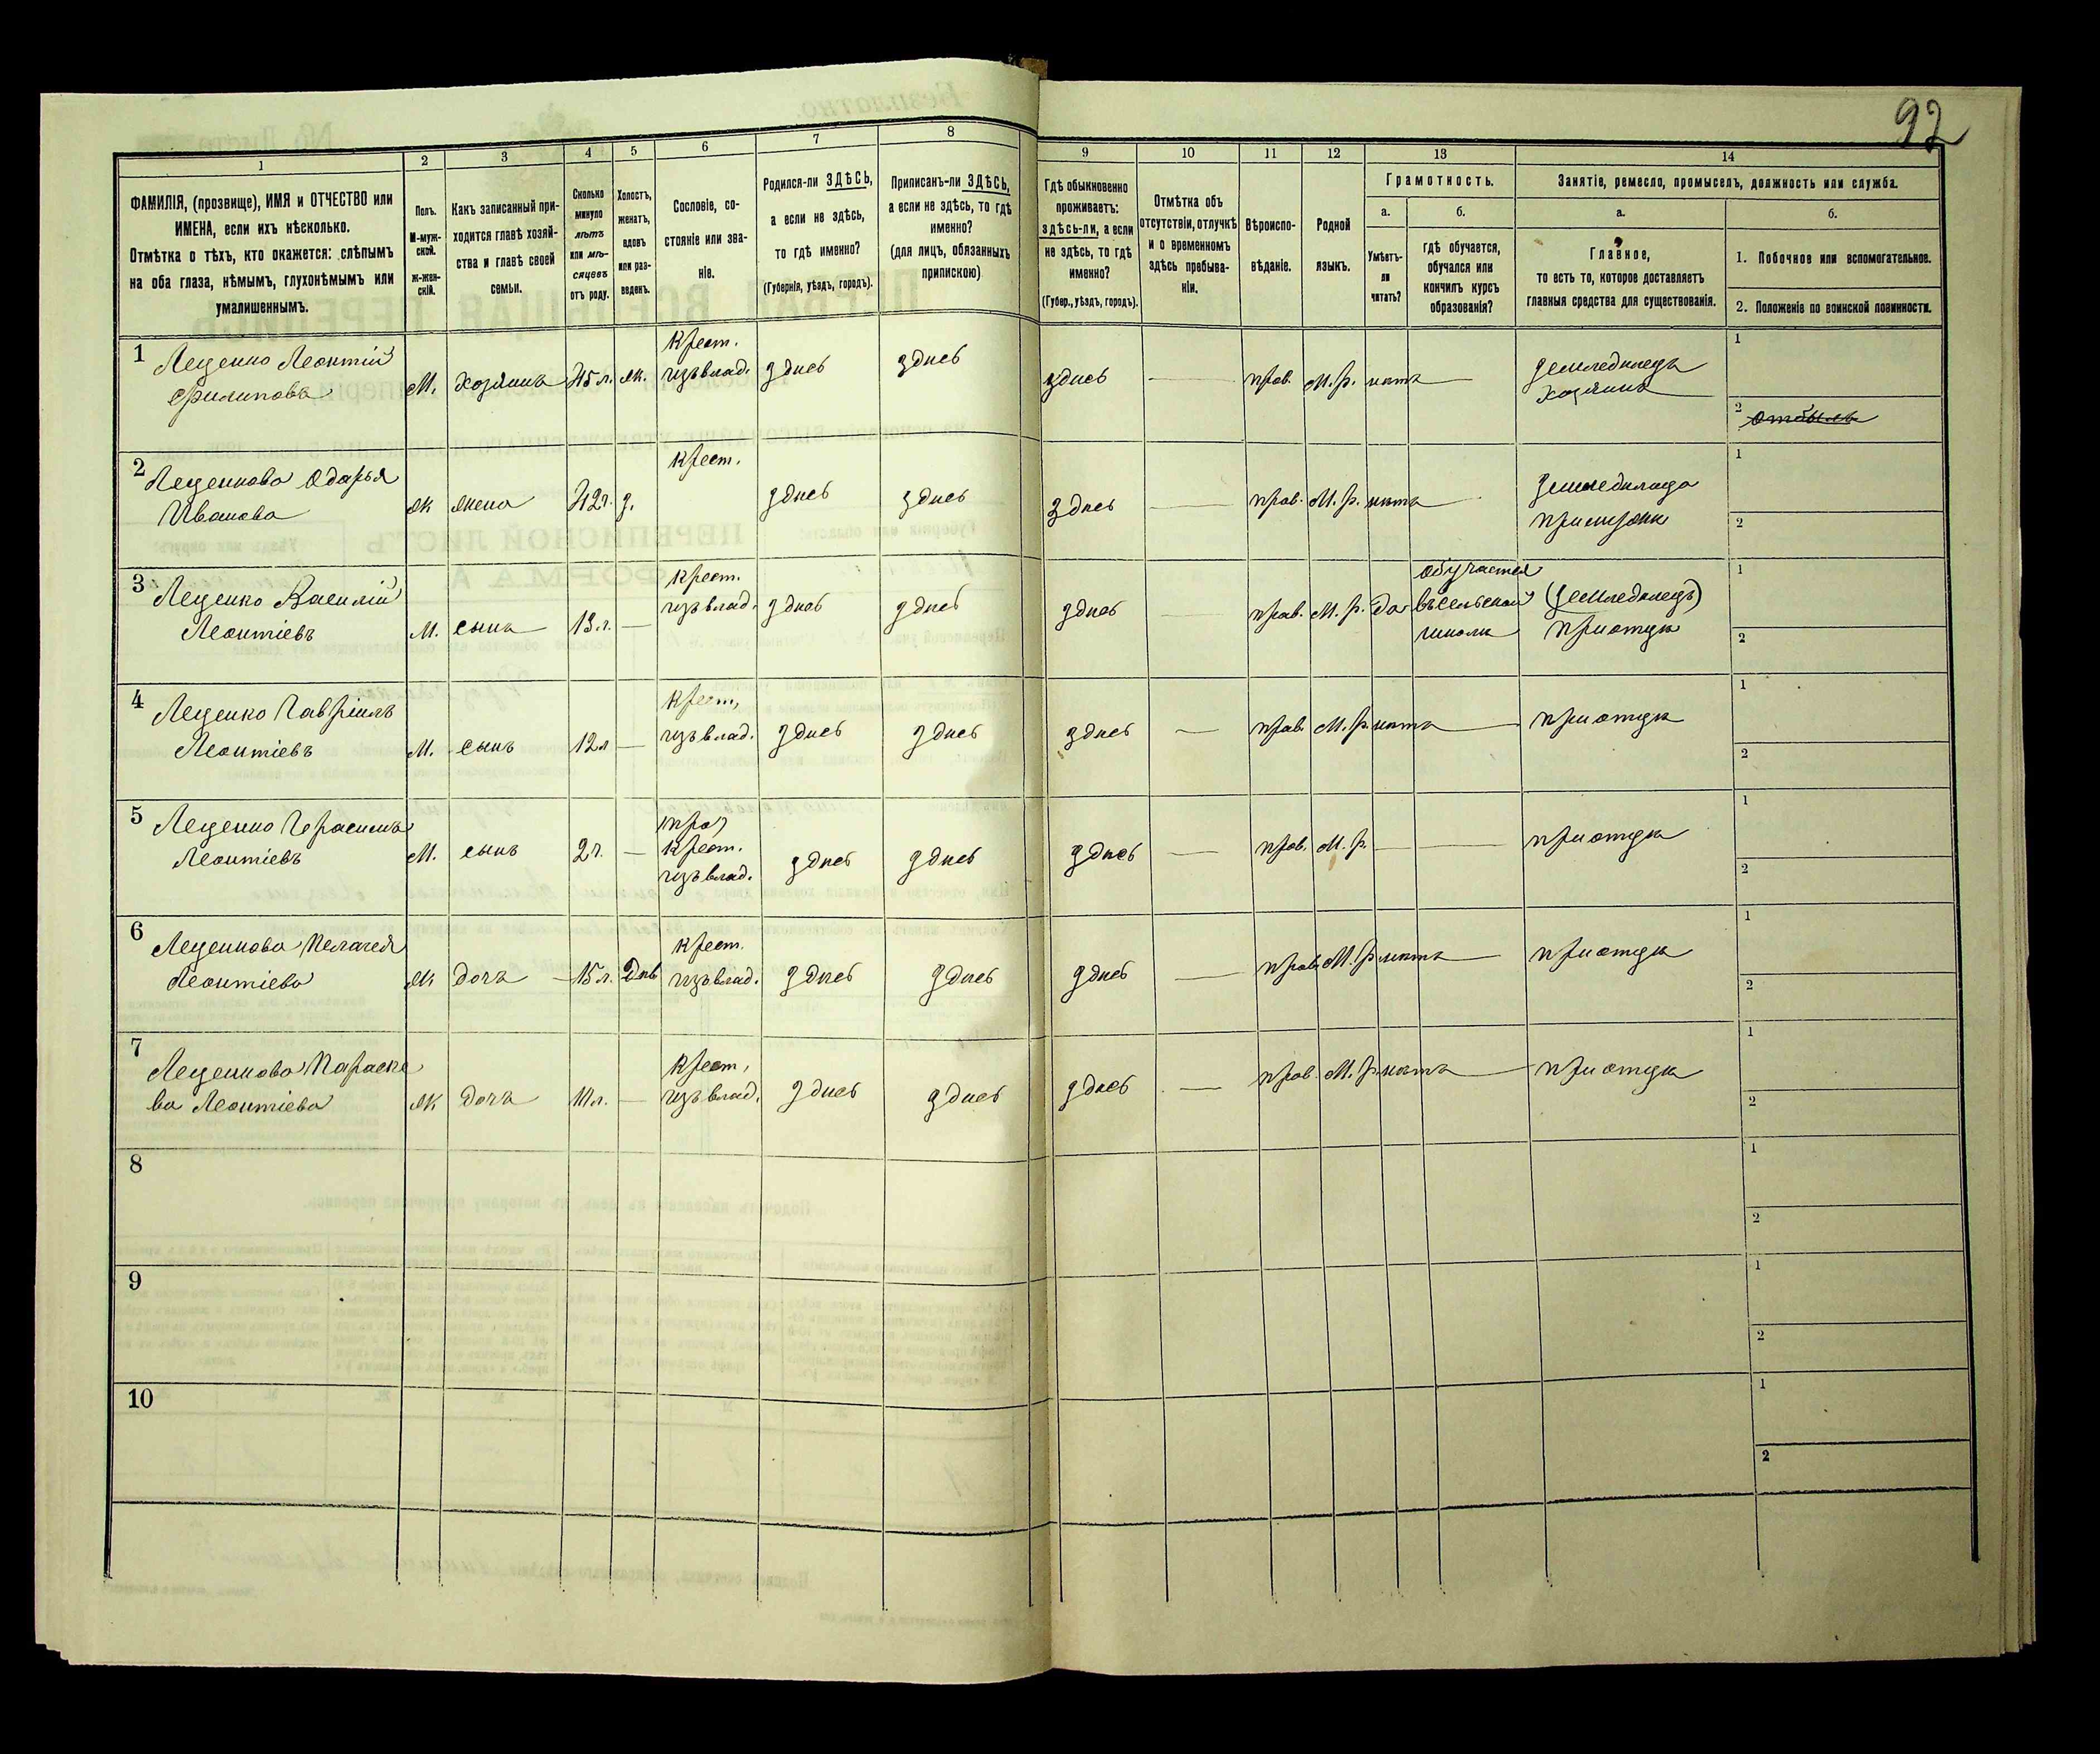 92
1
2
3
4
5
6
7
8
9
10
11
12
13
14
ФАМИЛІЯ, (прозвище), ИМЯ и ОТЧЕСТВО или
ИМЕНА, если ихъ нѣсколько.
Отмѣтка о тѣхъ, кто окажется: слѣпымъ
на оба глаза, нѣмымъ, глухонѣмымъ или
умалишеннымъ.
Полъ.
М-муж-
ской.
ж-жен-
скій.
Какъ записанный при-
ходится главѣ хозяй-
ства и главѣ своей
семьи.
Сколько
минуло
лѣтъ
или мѣ-
сяцевъ
отъ роду.
Холостъ,
женатъ,
вдовъ
или раз-
веденъ.
Сословіе, со-
стояніе или зва-
ніе.
Родился-ли ЗДѢСЬ,
а если не здѣсь,
то гдѣ именно?
(Губернія, уѣздъ, городъ).
Приписанъ-ли ЗДѢСЬ,
а если не здѣсь, то гдѣ
именно?
(для лицъ, обязанныхъ
припискою)
Гдѣ обыкновенно
проживаетъ:
здѣсь-ли, а если
не здѣсь, то гдѣ
именно?
(Губер., уѣздъ, городъ).
Отмѣтка объ
отсутствіи, отлучкѣ
и о временномъ
здѣсь пребыва-
ніи.
Вѣроиспо-
вѣданіе.
Родной
языкъ.
Грамотность.
а.
Умѣетъ-
ли
читать?
б.
гдѣ обучается,
обучался или
кончилъ курсъ
образованія?
Занятіе, ремесло, промыселъ, должность или служба.
а.
Главное,
то есть то, которое доставляетъ
главныя средства для существованія.
б.
1. Побочное или вспомогательное.
2. Положеніе по воинской повинности.
1
Леценко Леонтій
Филиповъ
М.
хозяинъ
45 л.
ж.
Крест.
изъ влад.
здѣсь
здѣсь
здѣсь
прав.
М. р.
нѣтъ
земледѣлецъ
хозяинъ
1
2
отбылъ
2
Леценкова Одарья
Иванова
ж
жена
42 г.
з.
Крест.
здѣсь
здѣсь
здѣсь
прав.
М. р.
нѣтъ
1
2
3
Леценко Василій
Леонтіевъ
М.
сынъ
13 л.
Крест.
изъ влад.
здѣсь
здѣсь
здѣсь
прав.
М. р.
да
обучается
въ сельской
школѣ
(земледѣлецъ)
при отцѣ
1
2
4
Леценко Гавріилъ
Леонтіевъ
М.
сынъ
12 л
Крест.
изъ влад.
здѣсь
здѣсь
здѣсь
прав.
М. р.
нѣтъ
при отцѣ
1
2
5
Леценко Герасимъ
Леонтіевъ
М.
сынъ
2 г.
Крест.
изъ влад.
здѣсь
здѣсь
здѣсь
прав.
М. р.
при отцѣ
1
2
6
Леценкова Пелагея
Леонтіева
ж
дочь
15 л.
Дѣв
Крест.
изъ влад.
здѣсь
здѣсь
здѣсь
прав.
М. р.
нѣтъ
при отцѣ
1
2
7
Леценкова Параске
ва Леонтіева
ж
дочь
11 л.
Крест.
изъ влад.
здѣсь
здѣсь
здѣсь
прав.
М. р.
нѣтъ
при отцѣ
1
2
8
1
2
9
1
2
10
1
2